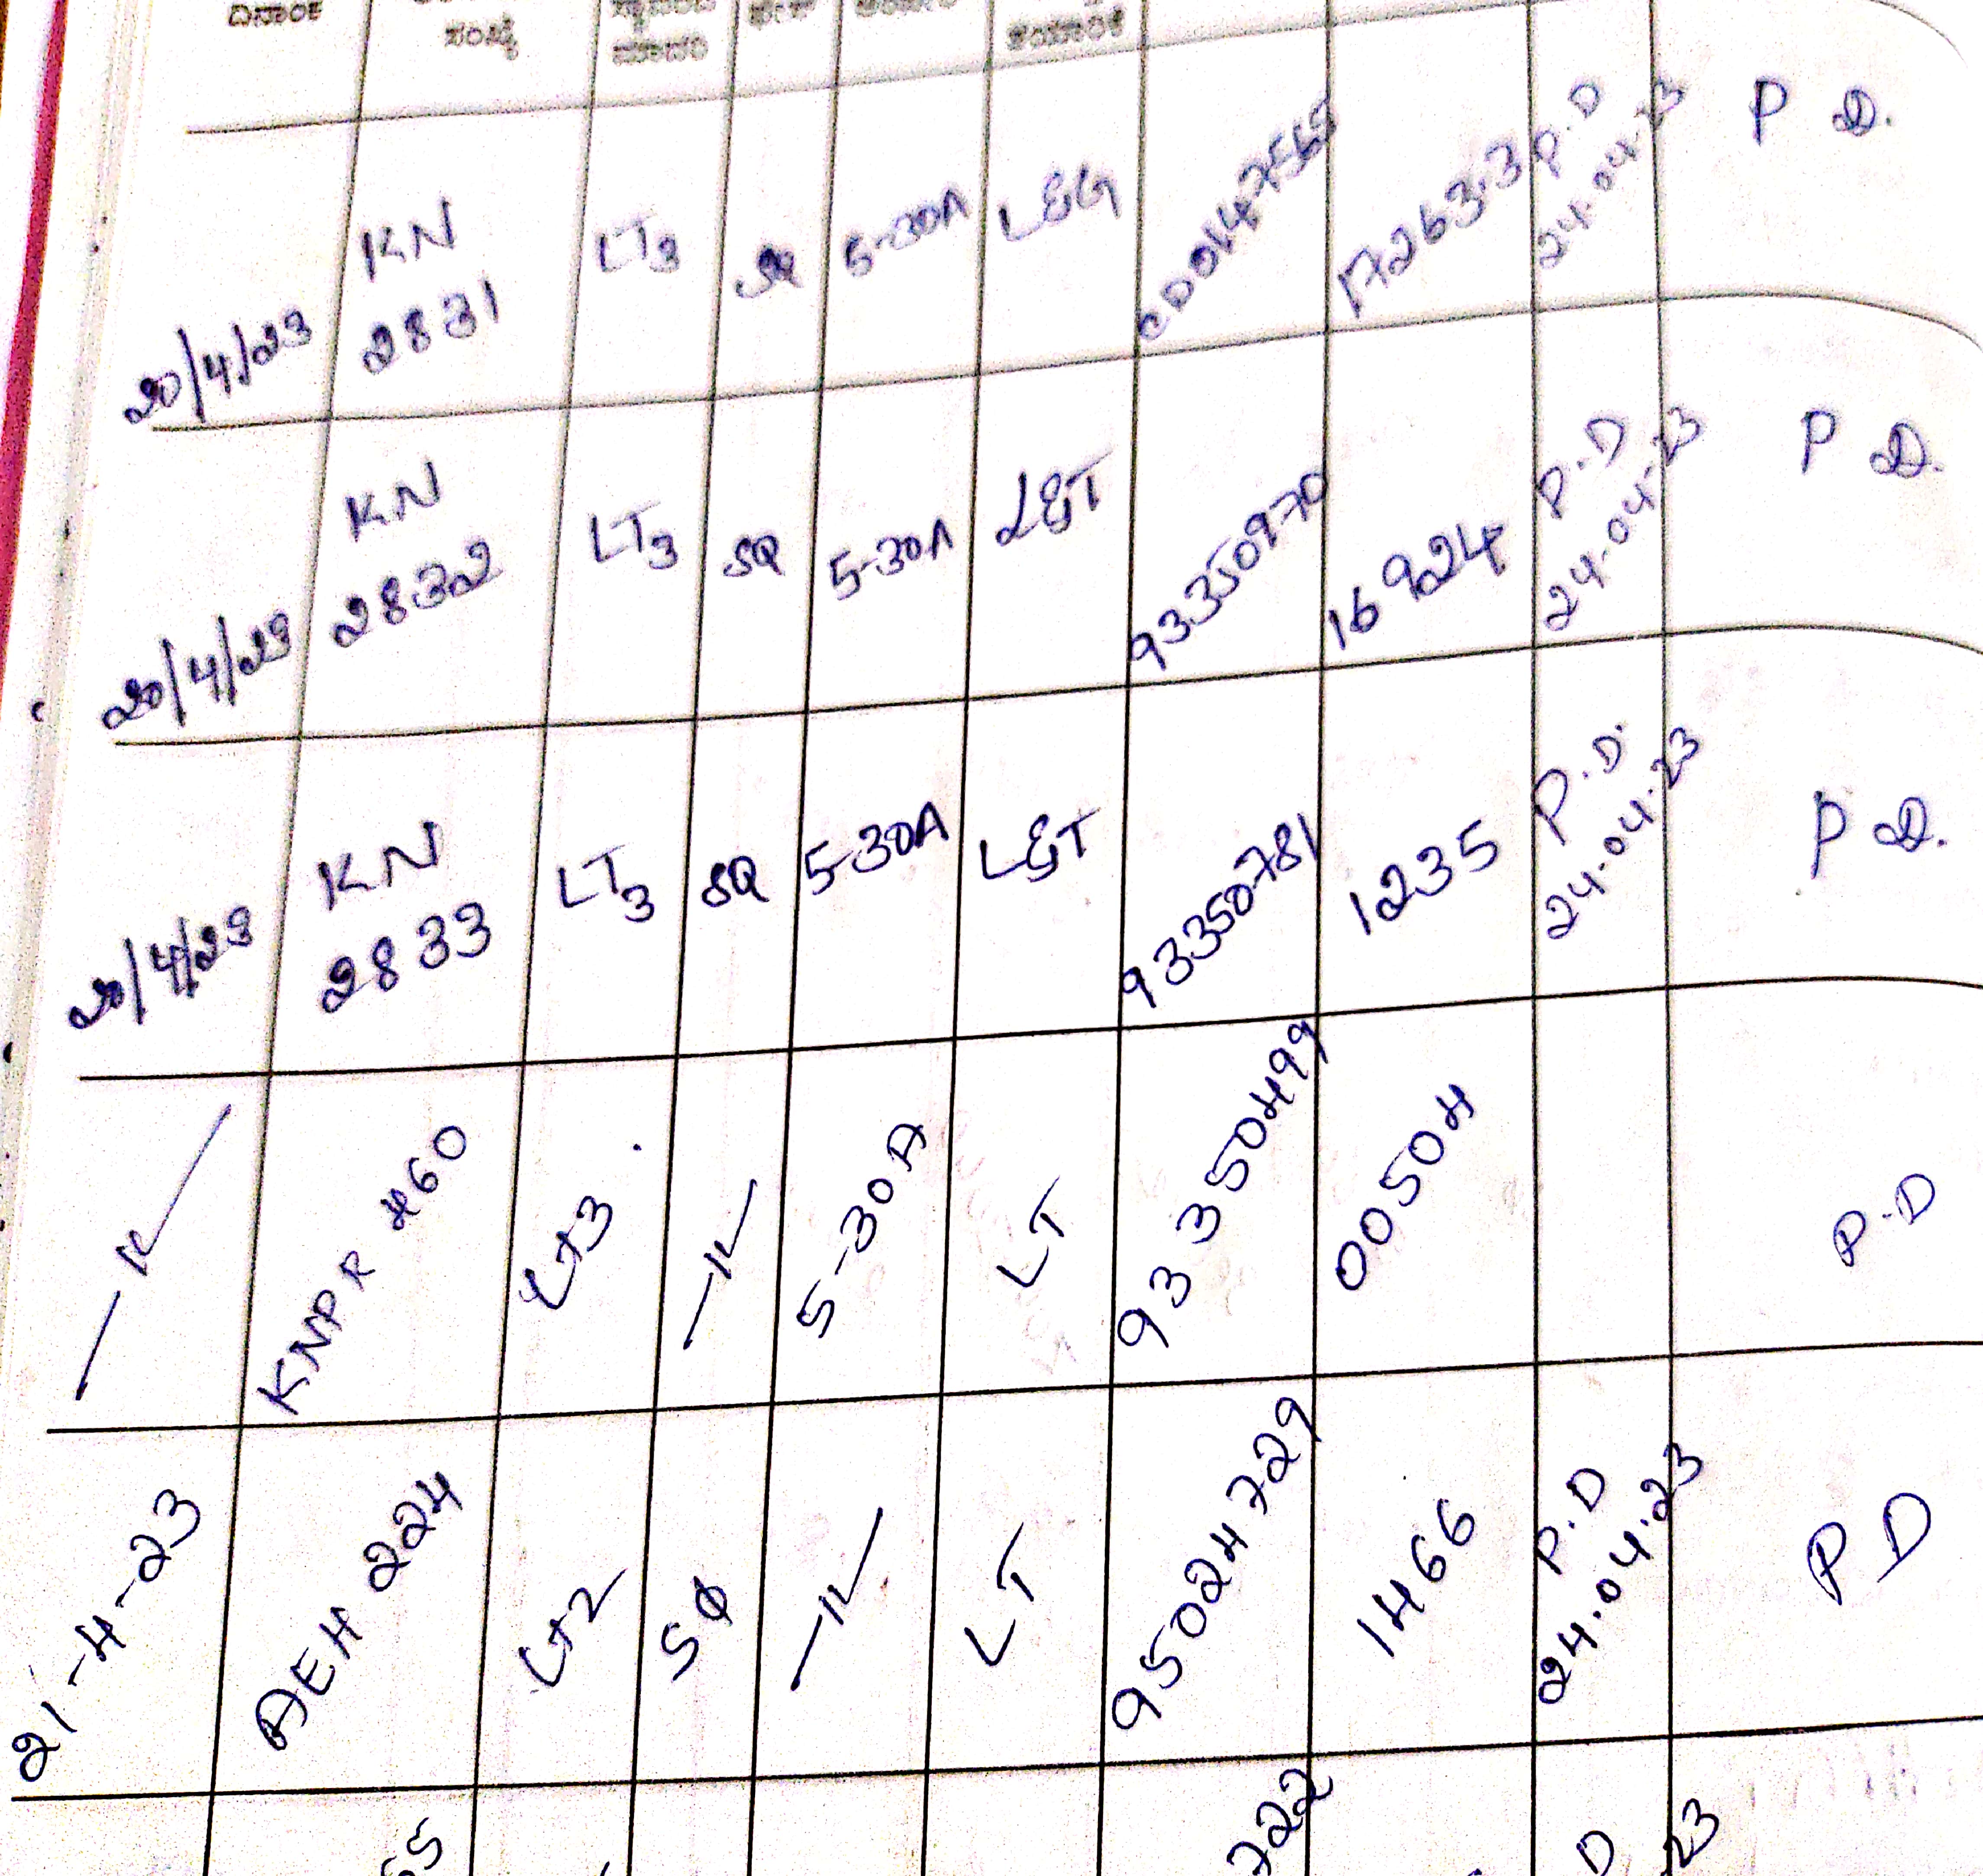 ದಿನಾಂಕ ಸಂಖ್ಯೆ ಮಾಪಕ ತಯಾರಿಕೆ
20/4/23 KN 2831 LT3 5-30A L&G 17263.3 P.D 24.04.23 P D.
20/4/23 KN 2832 LT3 SQ 5-30A L&T 93350970 16924 P.D 24.04.23 P D.
20/4/23 KN 2833 LT3 SQ 5-30A L&T 93350781 1235 P.D. 24.04.23 P D.
—〃— KNPR 460 LT3 —〃— 5-30A LT 93350499 00504 P.D
21-4-23 AEH 224 LT2 SФ —〃— LT 95024729 1466 P.D 24.04.23 PD
722 D 23